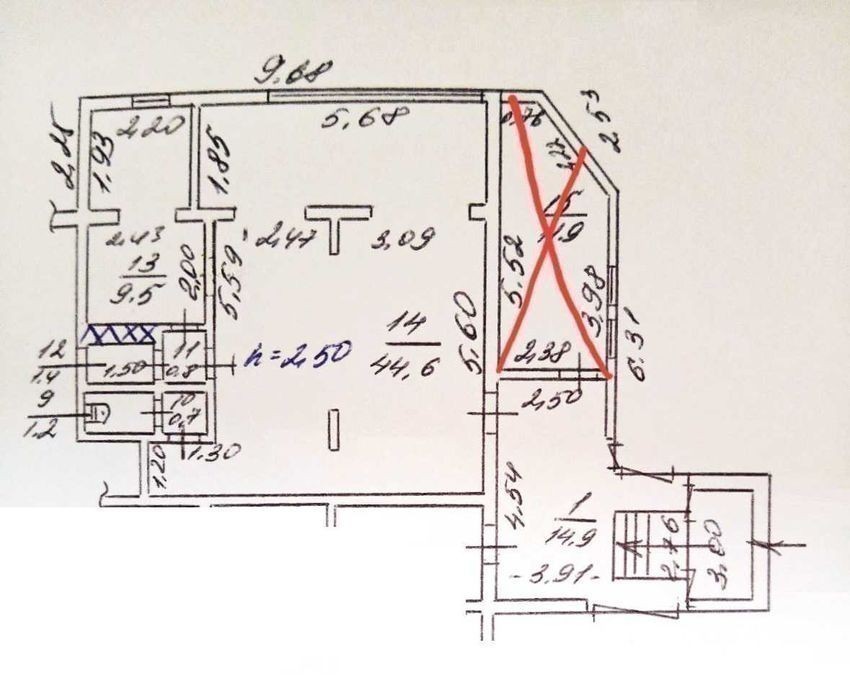 9.68
2,20
5,68
0,76
2.53
2,25
1.93
1.85
1,77
15
11.9
2.43
2,47
3.09
13
9.5
2,00
5,59
5.52
3.98
14
44,6
5.60
6.31
12
1.4
1.50
11
0.8
h=2,50
2,38
2,50
9
1.2
10
0,7
1.20
1.30
4.54
1
14.9
2.76
3.00
-3,91-